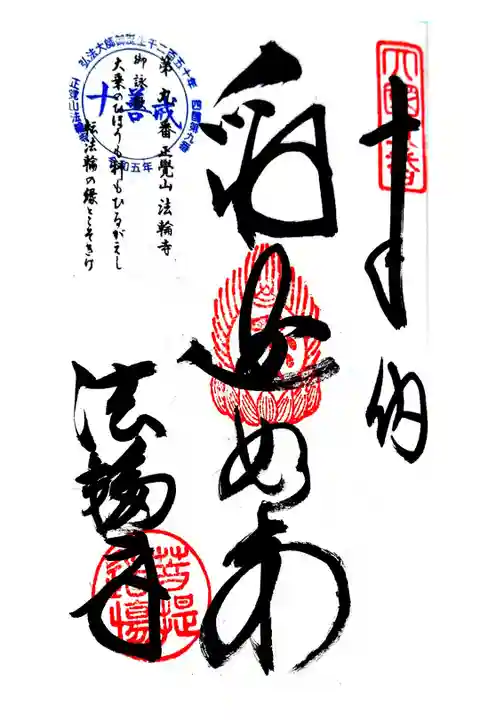 奉納
四國第九番
釈迦如来
法輪寺
菩提道場
第九番正覺山法輪寺
御詠歌
大乗のひほうも科もひるがえし
転法輪の縁とこそきけ
弘法大師御誕生千二百五十年
四國第九番
十善戒
正覚山法輪寺
令和五年